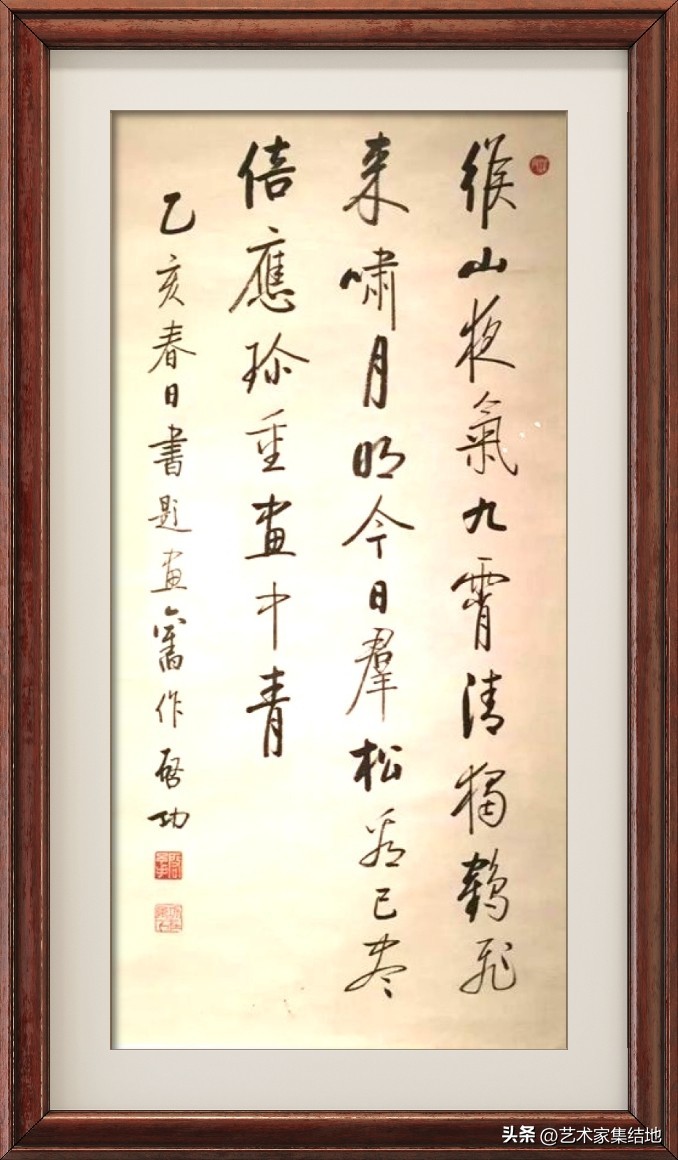 緱山夜氣九霄清獨鶴飛
来嘯月明今日羣松已盡
倍應珍重畫中青
乙亥春日書題畫舊作啓功
头条 @艺术家集结地